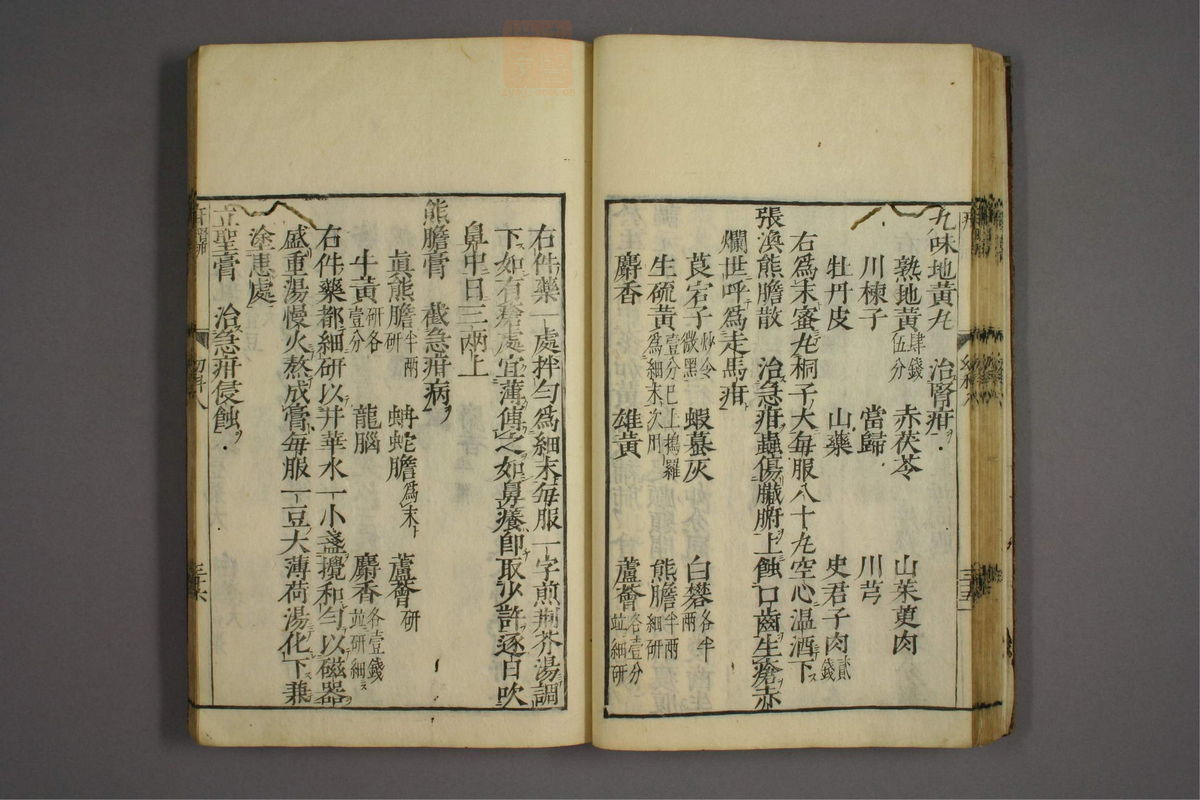 九味地黃丸　治腎疳
熟地黃肆錢伍分　赤茯苓　山茱萸肉
川楝子　當歸　川芎
牡丹皮　山藥　史君子肉貳錢
右爲末蜜丸桐子大每服八十丸空心温酒下
張渙熊膽散　治急疳蟲傷臟腑上蝕口齒生瘡赤
爛世呼爲走馬疳
莨宕子炒令微黑　蝦蟇灰　白礬各半兩
生硫黃壹分已上擣羅爲細末次用　熊膽半兩細研
麝香　雄黃　蘆薈各壹分並細研
右件藥一處拌勻爲細末每服一字煎荆芥湯調
下如有瘡處宜薄傅之如鼻癢即取少許逐日吹
鼻中日三兩上
熊膽膏　截急疳病
眞熊膽半兩研　蚺蛇膽爲末　蘆薈研
牛黃研各壹分　龍腦　麝香各壹錢並研細
右件藥都細研以井華水一小盞攪和勻以磁器
盛重湯慢火熬成膏每服一豆大薄荷湯化下兼
塗患處
立聖膏　治急疳侵蝕